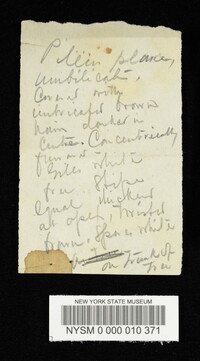 Pileus plane,
umbilicate,
covered with
imbricated brown
darker in
centre. Concentrically
Gills white
free Stipe
equal
at apex,
brown Spores white
on trunk of
tree
NEW YORK STATE MUSEUM
NYSM 0 000 010 371